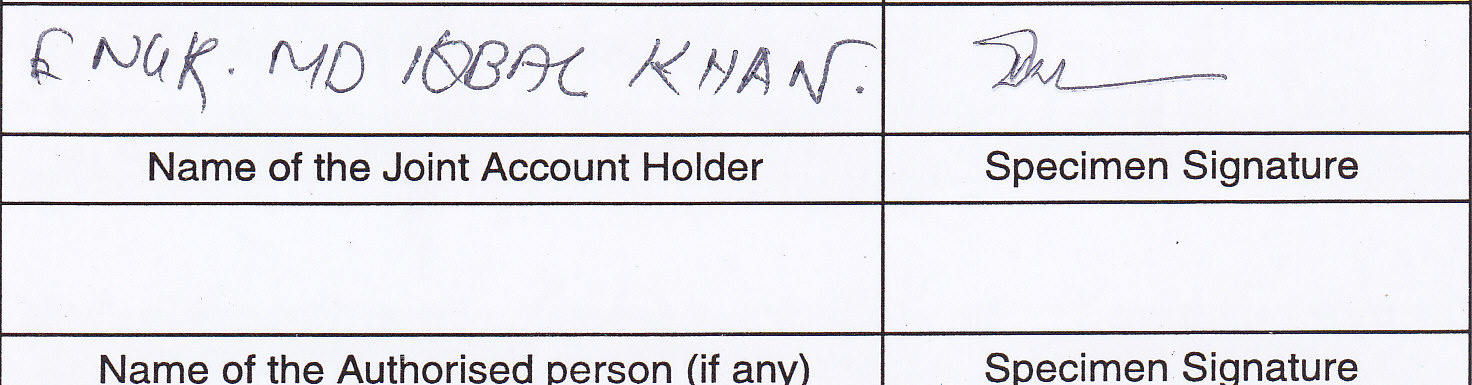 ENGR. MD IQBAL KHAN.
Name of the Joint Account Holder Specimen Signature
Name of the Authorised person (if any) Specimen Signature